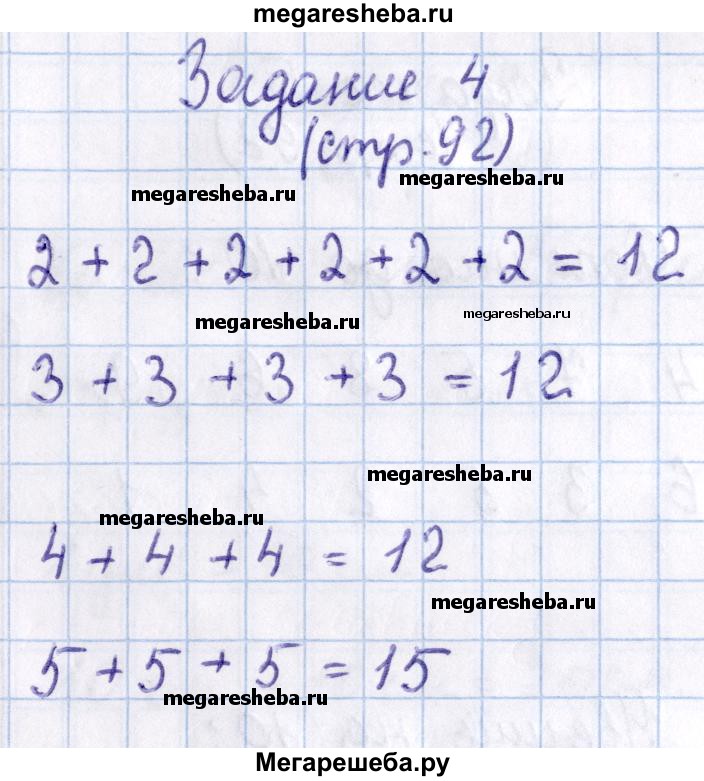 megaresheba.ru
Задание 4
(стр. 92)
megaresheba.ru
megaresheba.ru
2 + 2 + 2 + 2 + 2 + 2 = 12
megaresheba.ru
megaresheba.ru
3 + 3 + 3 + 3 = 12
megaresheba.ru
megaresheba.ru
4 + 4 + 4 = 12
megaresheba.ru
5 + 5 + 5 = 15
megaresheba.ru
Мегарешеба.ру